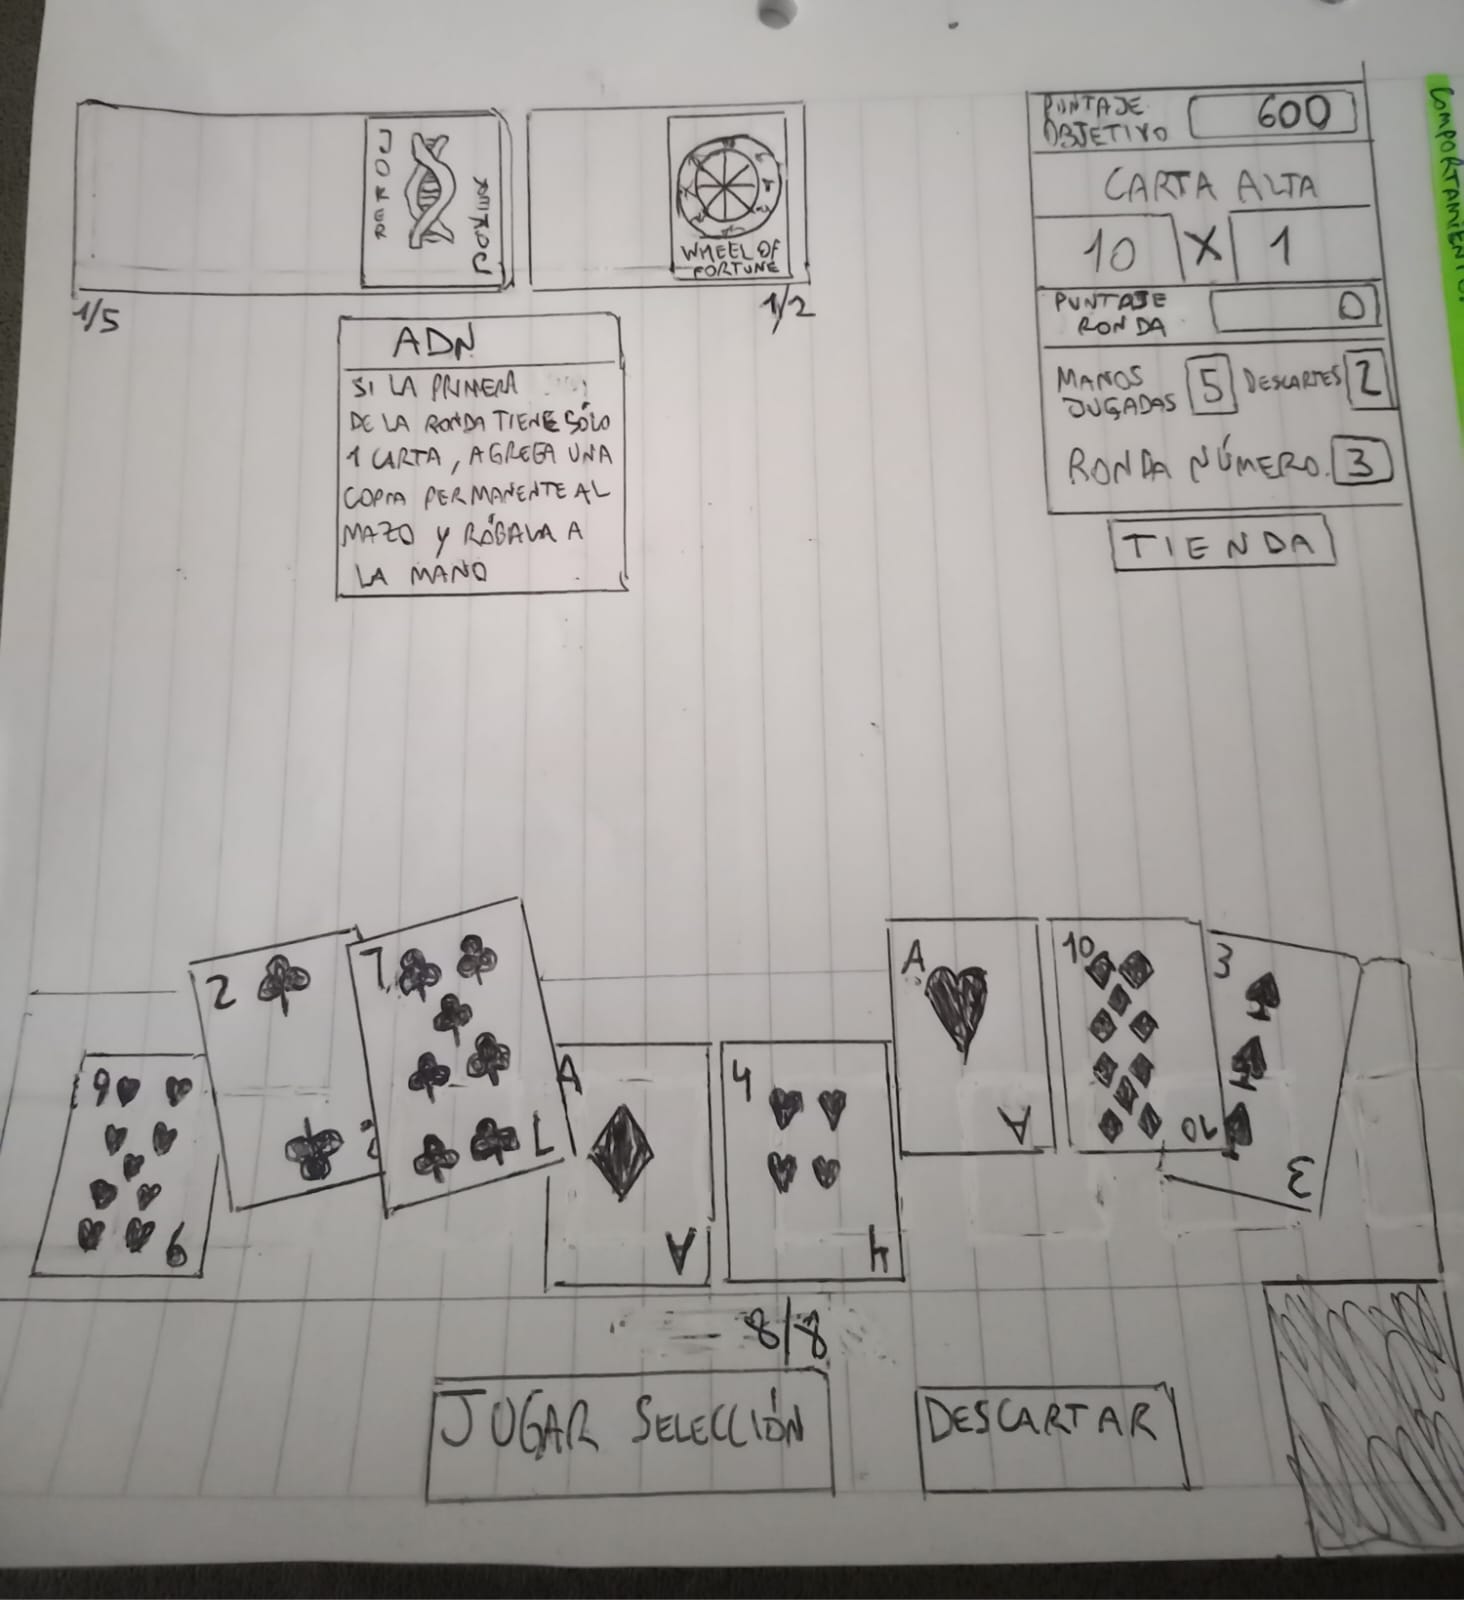 JOKER
JOKER
WHEEL OF
FORTUNE
1/5
1/2
ADN
SI LA PRIMERA
DE LA RONDA TIENE SÓLO
1 CARTA, AGREGA UNA
COPIA PERMANENTE AL
MAZO Y RÓBALA A
LA MANO
PUNTAJE
OBJETIVO
600
CARTA ALTA
10 X 1
PUNTAJE
RONDA
0
MANOS
JUGADAS
5
DESCARTES
2
RONDA NÚMERO.
3
TIENDA
9
9
2
2
7
7
A
A
4
4
A
A
10
10
3
3
8/8
JUGAR SELECCIÓN
DESCARTAR